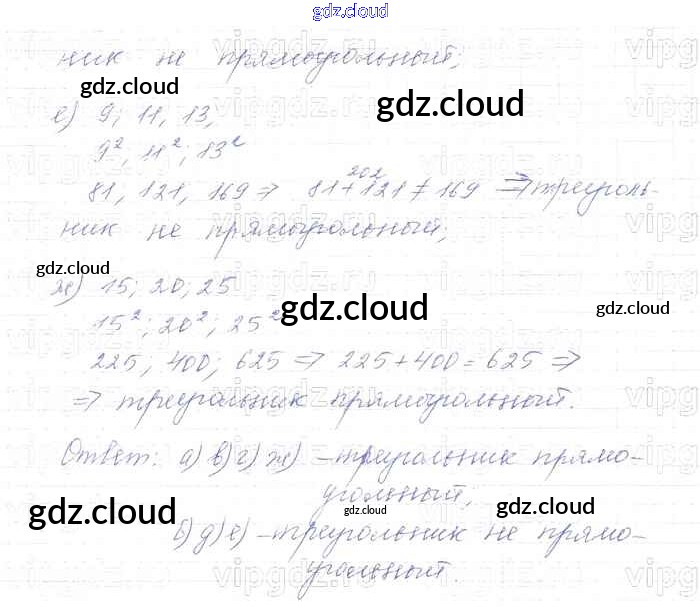 gdz.cloud
ник не прямоугольный;
gdz.cloud
gdz.cloud
е) 9; 11, 13,
9², 11²; 13²
202
81, 121, 169 ⇒ 81+121 ≠ 169 ⇒ треуголь-
ник не прямоугольный;
gdz.cloud
ж) 15; 20; 25
gdz.cloud
gdz.cloud
15²; 20²; 25²
225; 400; 625 ⇒ 225+400=625 ⇒
⇒ треугольник прямоугольный.
Ответ: а) в) г) ж) – треугольник прямо-
угольный;
gdz.cloud
gdz.cloud
gdz.cloud
б) д) е) – треугольник не прямо-
угольный.